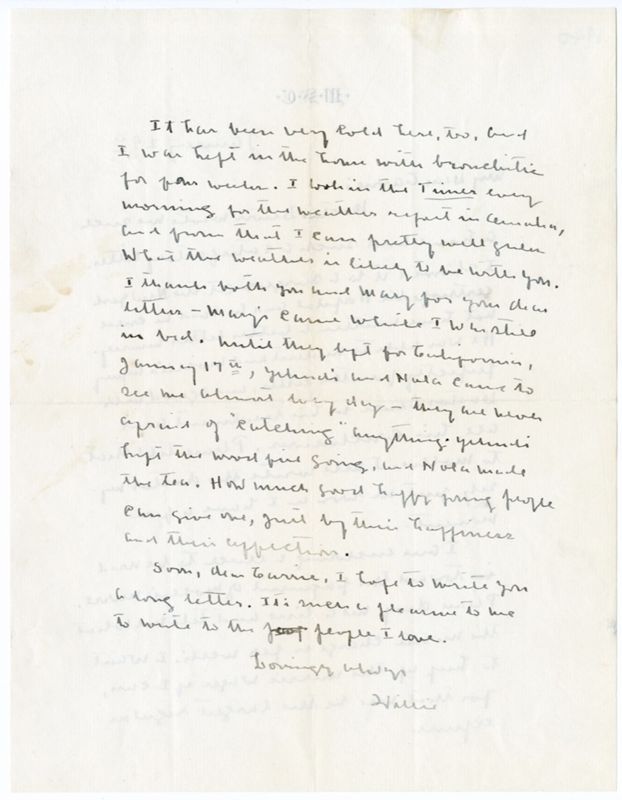 It has been very cold here, too, and
I was kept in the house with bronchitis
for four weeks. I look in the Times every
morning for the weather report in Omaha,
and from that I can pretty well guess
What the weather is likely to be with you.
I thank both you and Mary for your dear
letters – Mary's came while I was still
in bed. Until they left for California,
January 17th, Yehudi and Nola came to
see me almost every day – they are never
afraid of "catching" anything. Yehudi
kept the wood fire going, and Nola made
the tea. How much good happy young people
can give one, just by their happiness
and their affection.
Soon, dear Carrie, I hope to write you
a long letter. It is such a pleasure to me
to write to the people I love.
Lovingly always
Willie